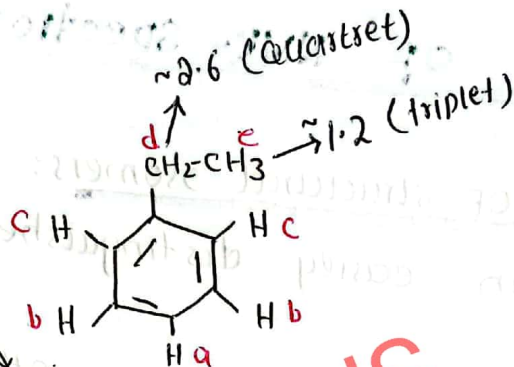 ~2.6 (Quartret)
d e
CH2-CH3 → ~1.2 (triplet)
C H H C
b H H b
H a